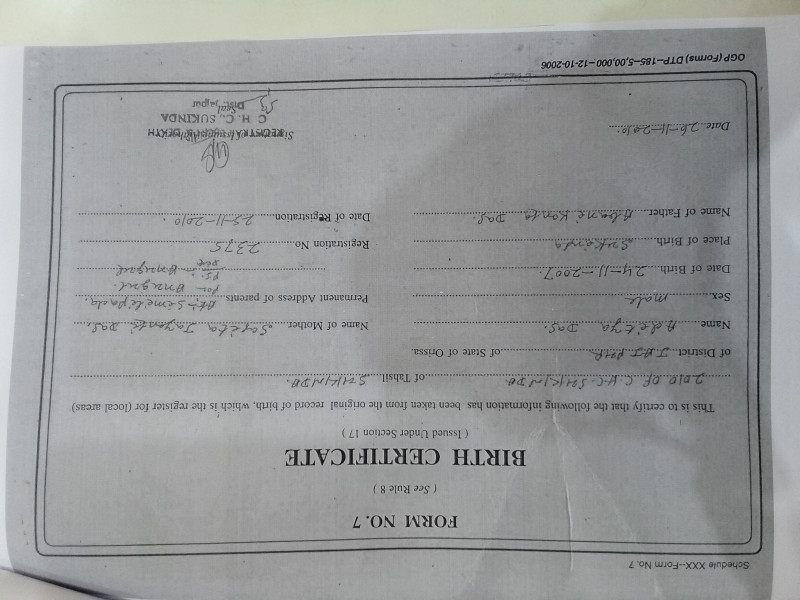 Schedule XXX—Form No. 7
FORM NO. 7
( See Rule 8 )
BIRTH CERTIFICATE
( Issued Under Section 17 )
This is to certify that the following information has been taken from the original record of birth, which is the register for (local areas)
2010 OF C.H.C SUKINDA of Tahsil SUKINDA
of District JAJPUR of State of Orissa.
Name Aditya Das. Name of Mother Sabita Jayanti Das.
Sex male Permanent Address of parents At:- Similipada,
Po:- Anugul.
Date of Birth 24-11-2007 Anugul
Place of Birth Sukinda Registration No. 2375
Name of Father Abani Kanta Das. Date of Registration 25-11-2010.
Date 26-11-2010.
C. H. C., SUKINDA
Seal
Dist. Jajpur
OGP (Forms) DTP—185—5,00,000—12-10-2006